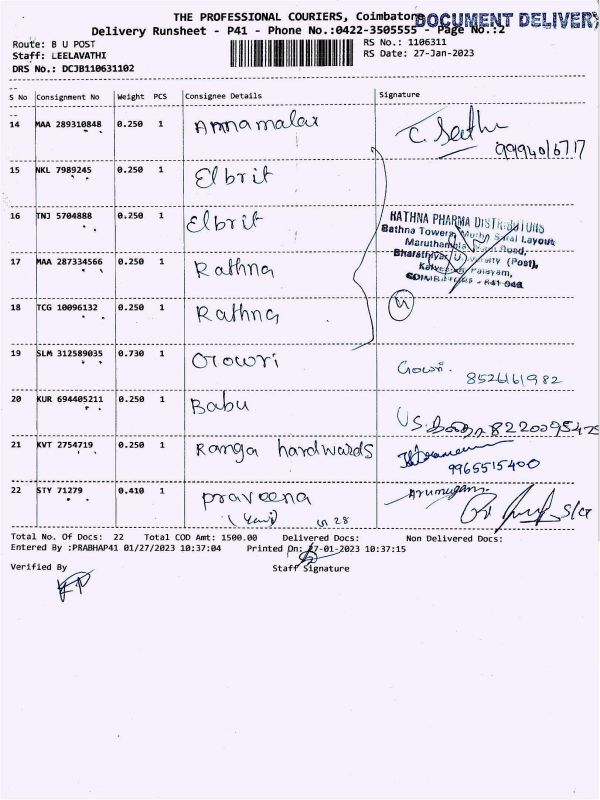 THE PROFESSIONAL COURIERS, Coimbatore
DOCUMENT DELIVERY
Delivery Runsheet - P41 - Phone No.:0422-3505555 - Page No.:2
Route: B U POST
Staff: LEELAVATHI
DRS No.: DCJB110631102
RS No.: 1106311
RS Date: 27-Jan-2023
S No Consignment No Weight PCS Consignee Details Signature
14 MAA 289310848 0.250 1 Annamalai
99940/6717
15 NKL 7989245 0.250 1 Elbrit
16 TNJ 5704888 0.250 1 Elbrit
RATHNA PHARMA DISTRIBUTORS
Rathna Towers, Layout
Road,
Bharathiyar University (Post),
Palayam,
COIMBATORE - 641 046
17 MAA 287334566 0.250 1 Rathna
18 TCG 10096132 0.250 1 Rathna
4
19 SLM 312589035 0.730 1 Gowri Gowri.
8526161982
20 KUR 694405211 0.250 1 Babu
21 KVT 2754719 0.250 1 Ranga hardwards
9965515400
22 STY 71279 0.410 1 praveena Arumugam
28
Total No. Of Docs: 22 Total COD Amt: 1500.00 Delivered Docs: Non Delivered Docs:
Entered By :PRABHAP41 01/27/2023 10:37:04 Printed On: 27-01-2023 10:37:15
Verified By Staff Signature